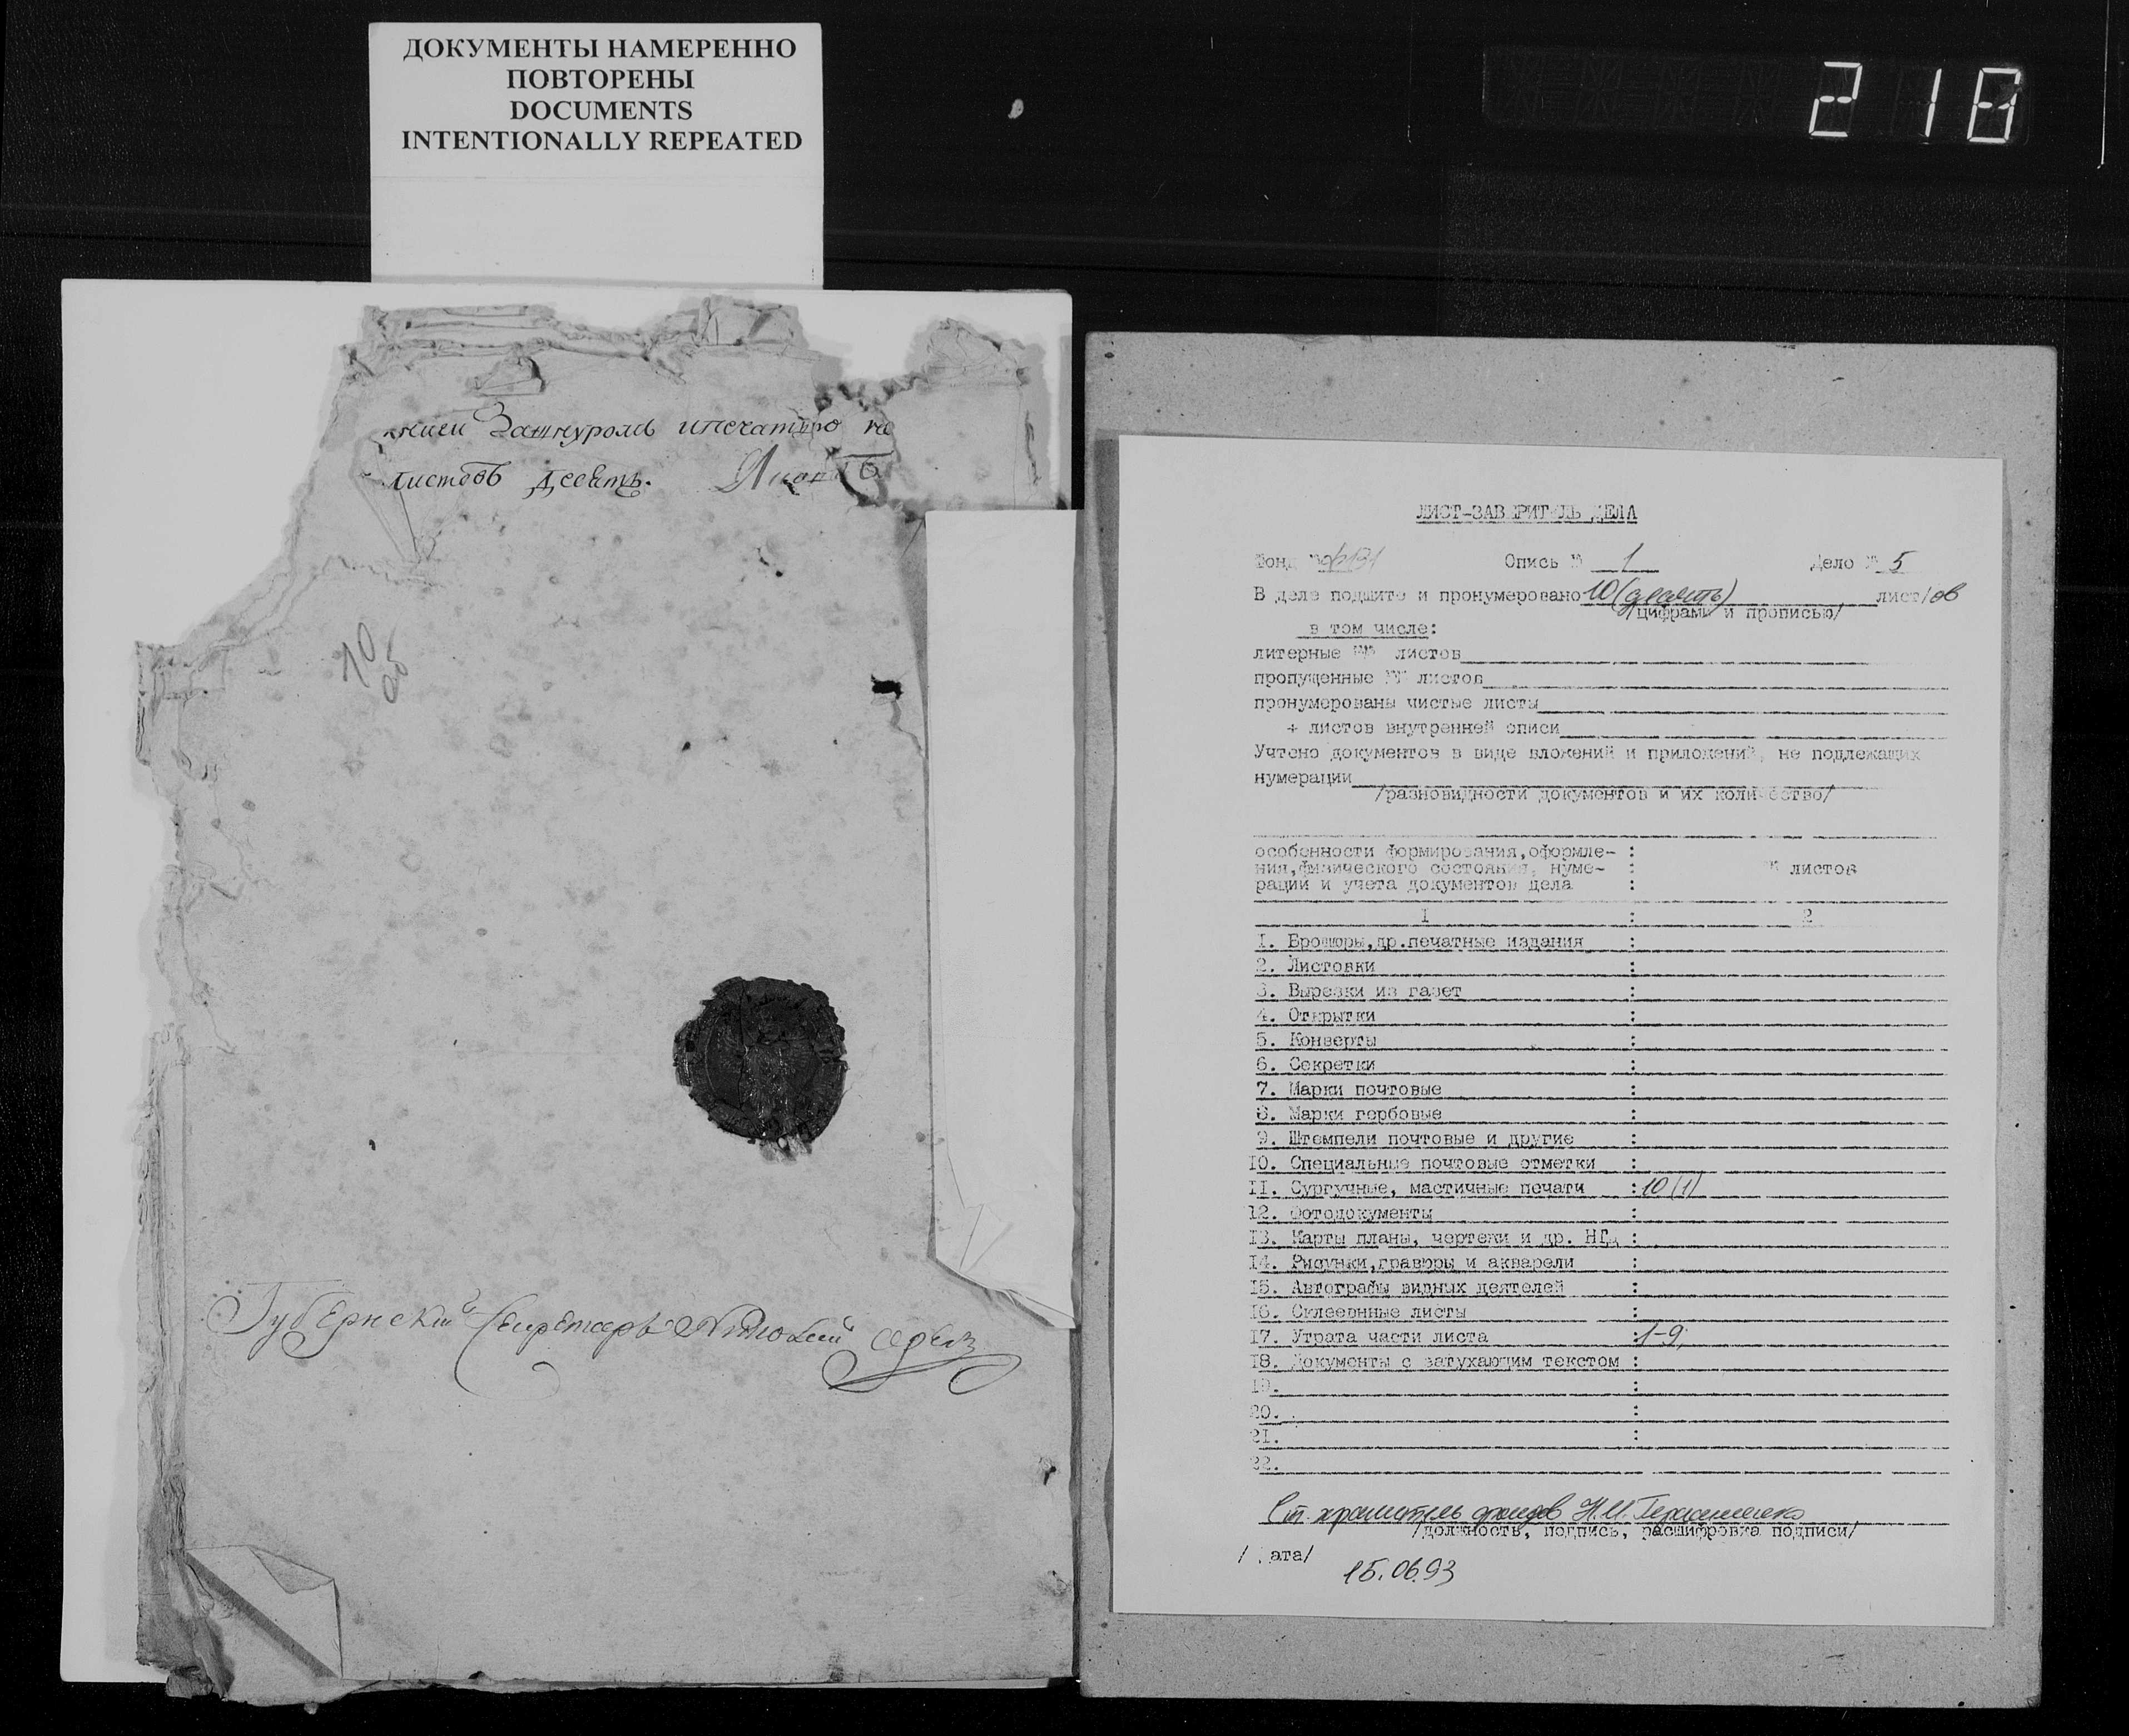 ДОКУМЕНТЫ НАМЕРЕННО
ПОВТОРЕНЫ
DOCUMENTS
INTENTIONALLY REPEATED
218
Зашнуромъ ипечатью
листовъ десять.
10
об
Губернский Секретарь
ЛИСТ-ЗАВЕРИТЕЛЬ ДЕЛА
Фонд № Опись № 1 Дело № 5
В деле подшито и пронумеровано 10 (десять) лист/ов
/цифрами и прописью/
в том числе:
литерные №№ листов
пропущенные №№ листов
пронумерованы чистые листы
+ листов внутренней описи
Учтено документов в виде вложений и приложений, не подлежащих
нумерации
/разновидности документов и их количество/
особенности формирования,оформле- :
ния,физического состояния, нуме- : № листов
рации и учета документов дела :
1 : 2
1. Брошюры,др.печатные издания :
2. Листовки :
3. Вырезки из газет :
4. Открытки :
5. Конверты :
6. Секретки :
7. Марки почтовые :
8. Марки гербовые :
9. Штемпели почтовые и другие :
10. Специальные почтовые отметки :
11. Сургучные, мастичные печати : 10 (1)
12. Фотодокументы :
13. Карты планы, чертежи и др. НТД :
14. Рисунки,гравюры и акварели :
15. Автографы видных деятелей :
16. Склеенные листы :
17. Утрата части листа : 1-9;
18. Документы с затухающим текстом :
19. :
20. :
21. :
22.
Ст. хранитель фондов Н.И. Герасименко
/должность, подпись, расшифровка подписи/
/дата/
15.06.93